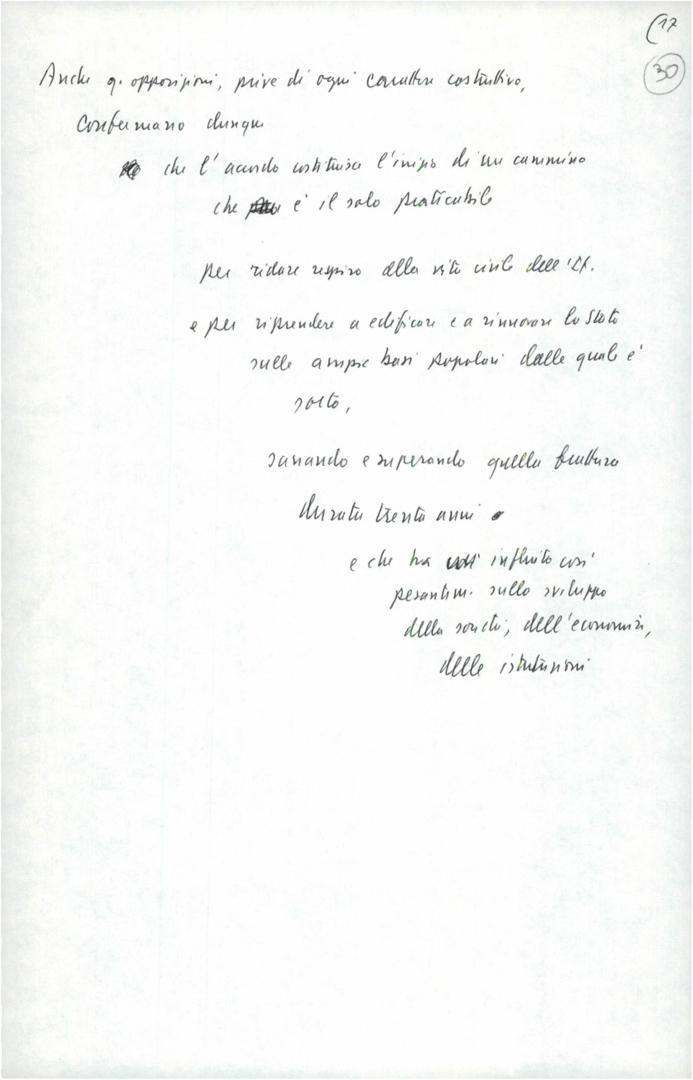 (17
30
Anche q. opposizioni, prive di ogni carattere costruttivo,
confermano dunque
che l'accordo costituisce l'inizio di un cammino
che è il solo praticabile
per ridare respiro alla vita civile dell'It.
e per riprendere a edificare e a rinnovare lo Stato
sulle ampie basi popolari dalle quali è
sorto,
sanando e superando quella frattura
durata trenta anni
e che ha influito così
pesantem. sullo sviluppo
della società, dell'economia,
delle istituzioni